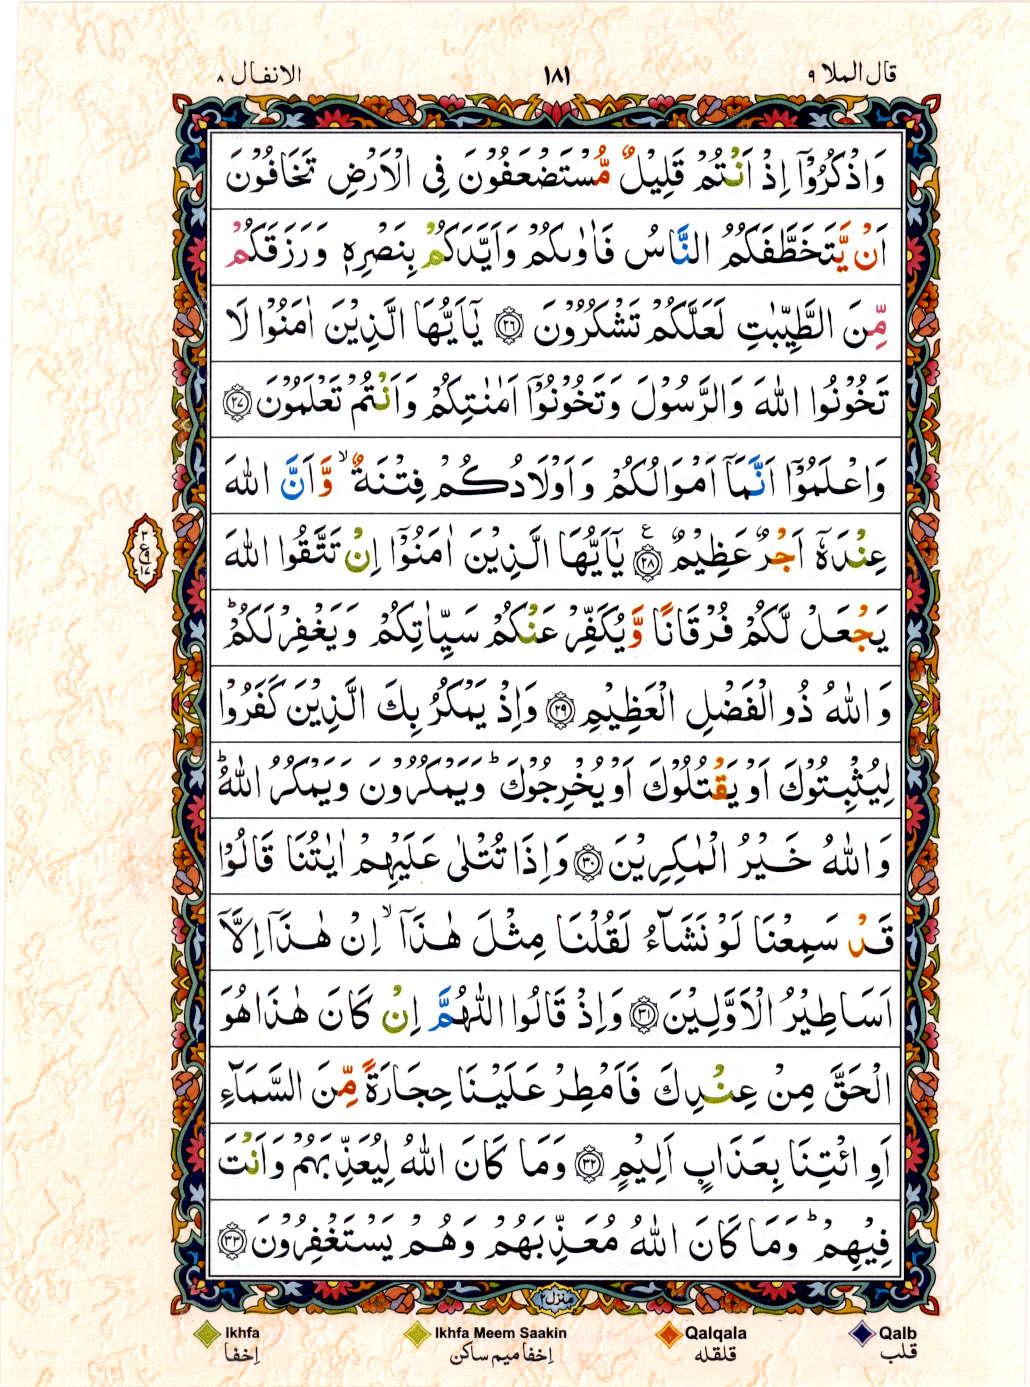 قال الملا ٩
١٨١
الانفال ٨
وَاذْكُرُوْٓا اِذْ اَنْتُمْ قَلِيْلٌ مُّسْتَضْعَفُوْنَ فِى الْاَرْضِ تَخَافُوْنَ
اَنْ يَّتَخَطَّفَكُمُ النَّاسُ فَاٰوٰىكُمْ وَاَيَّدَكُمْ بِنَصْرِهٖ وَرَزَقَكُمْ
مِّنَ الطَّيِّبٰتِ لَعَلَّكُمْ تَشْكُرُوْنَ ۝٢٦ يٰٓاَيُّهَا الَّذِيْنَ اٰمَنُوْا لَا
تَخُوْنُوا اللّٰهَ وَالرَّسُوْلَ وَتَخُوْنُوْٓا اَمٰنٰتِكُمْ وَاَنْتُمْ تَعْلَمُوْنَ ۝٢٧
وَاعْلَمُوْٓا اَنَّمَآ اَمْوَالُكُمْ وَاَوْلَادُكُمْ فِتْنَةٌ ۙ وَّاَنَّ اللّٰهَ
عِنْدَهٗٓ اَجْرٌ عَظِيْمٌ ۝٢٨ ع يٰٓاَيُّهَا الَّذِيْنَ اٰمَنُوْٓا اِنْ تَتَّقُوا اللّٰهَ
٣
ع
١٧
يَجْعَلْ لَّكُمْ فُرْقَانًا وَّيُكَفِّرْ عَنْكُمْ سَيِّاٰتِكُمْ وَيَغْفِرْ لَكُمْ ؕ
وَاللّٰهُ ذُو الْفَضْلِ الْعَظِيْمِ ۝٢٩ وَاِذْ يَمْكُرُ بِكَ الَّذِيْنَ كَفَرُوْا
لِيُثْبِتُوْكَ اَوْ يَقْتُلُوْكَ اَوْ يُخْرِجُوْكَ ؕ وَيَمْكُرُوْنَ وَيَمْكُرُ اللّٰهُ ؕ
وَاللّٰهُ خَيْرُ الْمٰكِرِيْنَ ۝٣٠ وَاِذَا تُتْلٰى عَلَيْهِمْ اٰيٰتُنَا قَالُوْا
قَدْ سَمِعْنَا لَوْ نَشَآءُ لَقُلْنَا مِثْلَ هٰذَآ ۙ اِنْ هٰذَآ اِلَّآ
اَسَاطِيْرُ الْاَوَّلِيْنَ ۝٣١ وَاِذْ قَالُوا اللّٰهُمَّ اِنْ كَانَ هٰذَا هُوَ
الْحَقَّ مِنْ عِنْدِكَ فَاَمْطِرْ عَلَيْنَا حِجَارَةً مِّنَ السَّمَآءِ
اَوِ ائْتِنَا بِعَذَابٍ اَلِيْمٍ ۝٣٢ وَمَا كَانَ اللّٰهُ لِيُعَذِّبَهُمْ وَاَنْتَ
فِيْهِمْ ؕ وَمَا كَانَ اللّٰهُ مُعَذِّبَهُمْ وَهُمْ يَسْتَغْفِرُوْنَ ۝٣٣
منزل ٢
Ikhfa Ikhfa Meem Saakin Qalqala Qalb
اِخفا اِخفا میم ساکن قلقله قلب